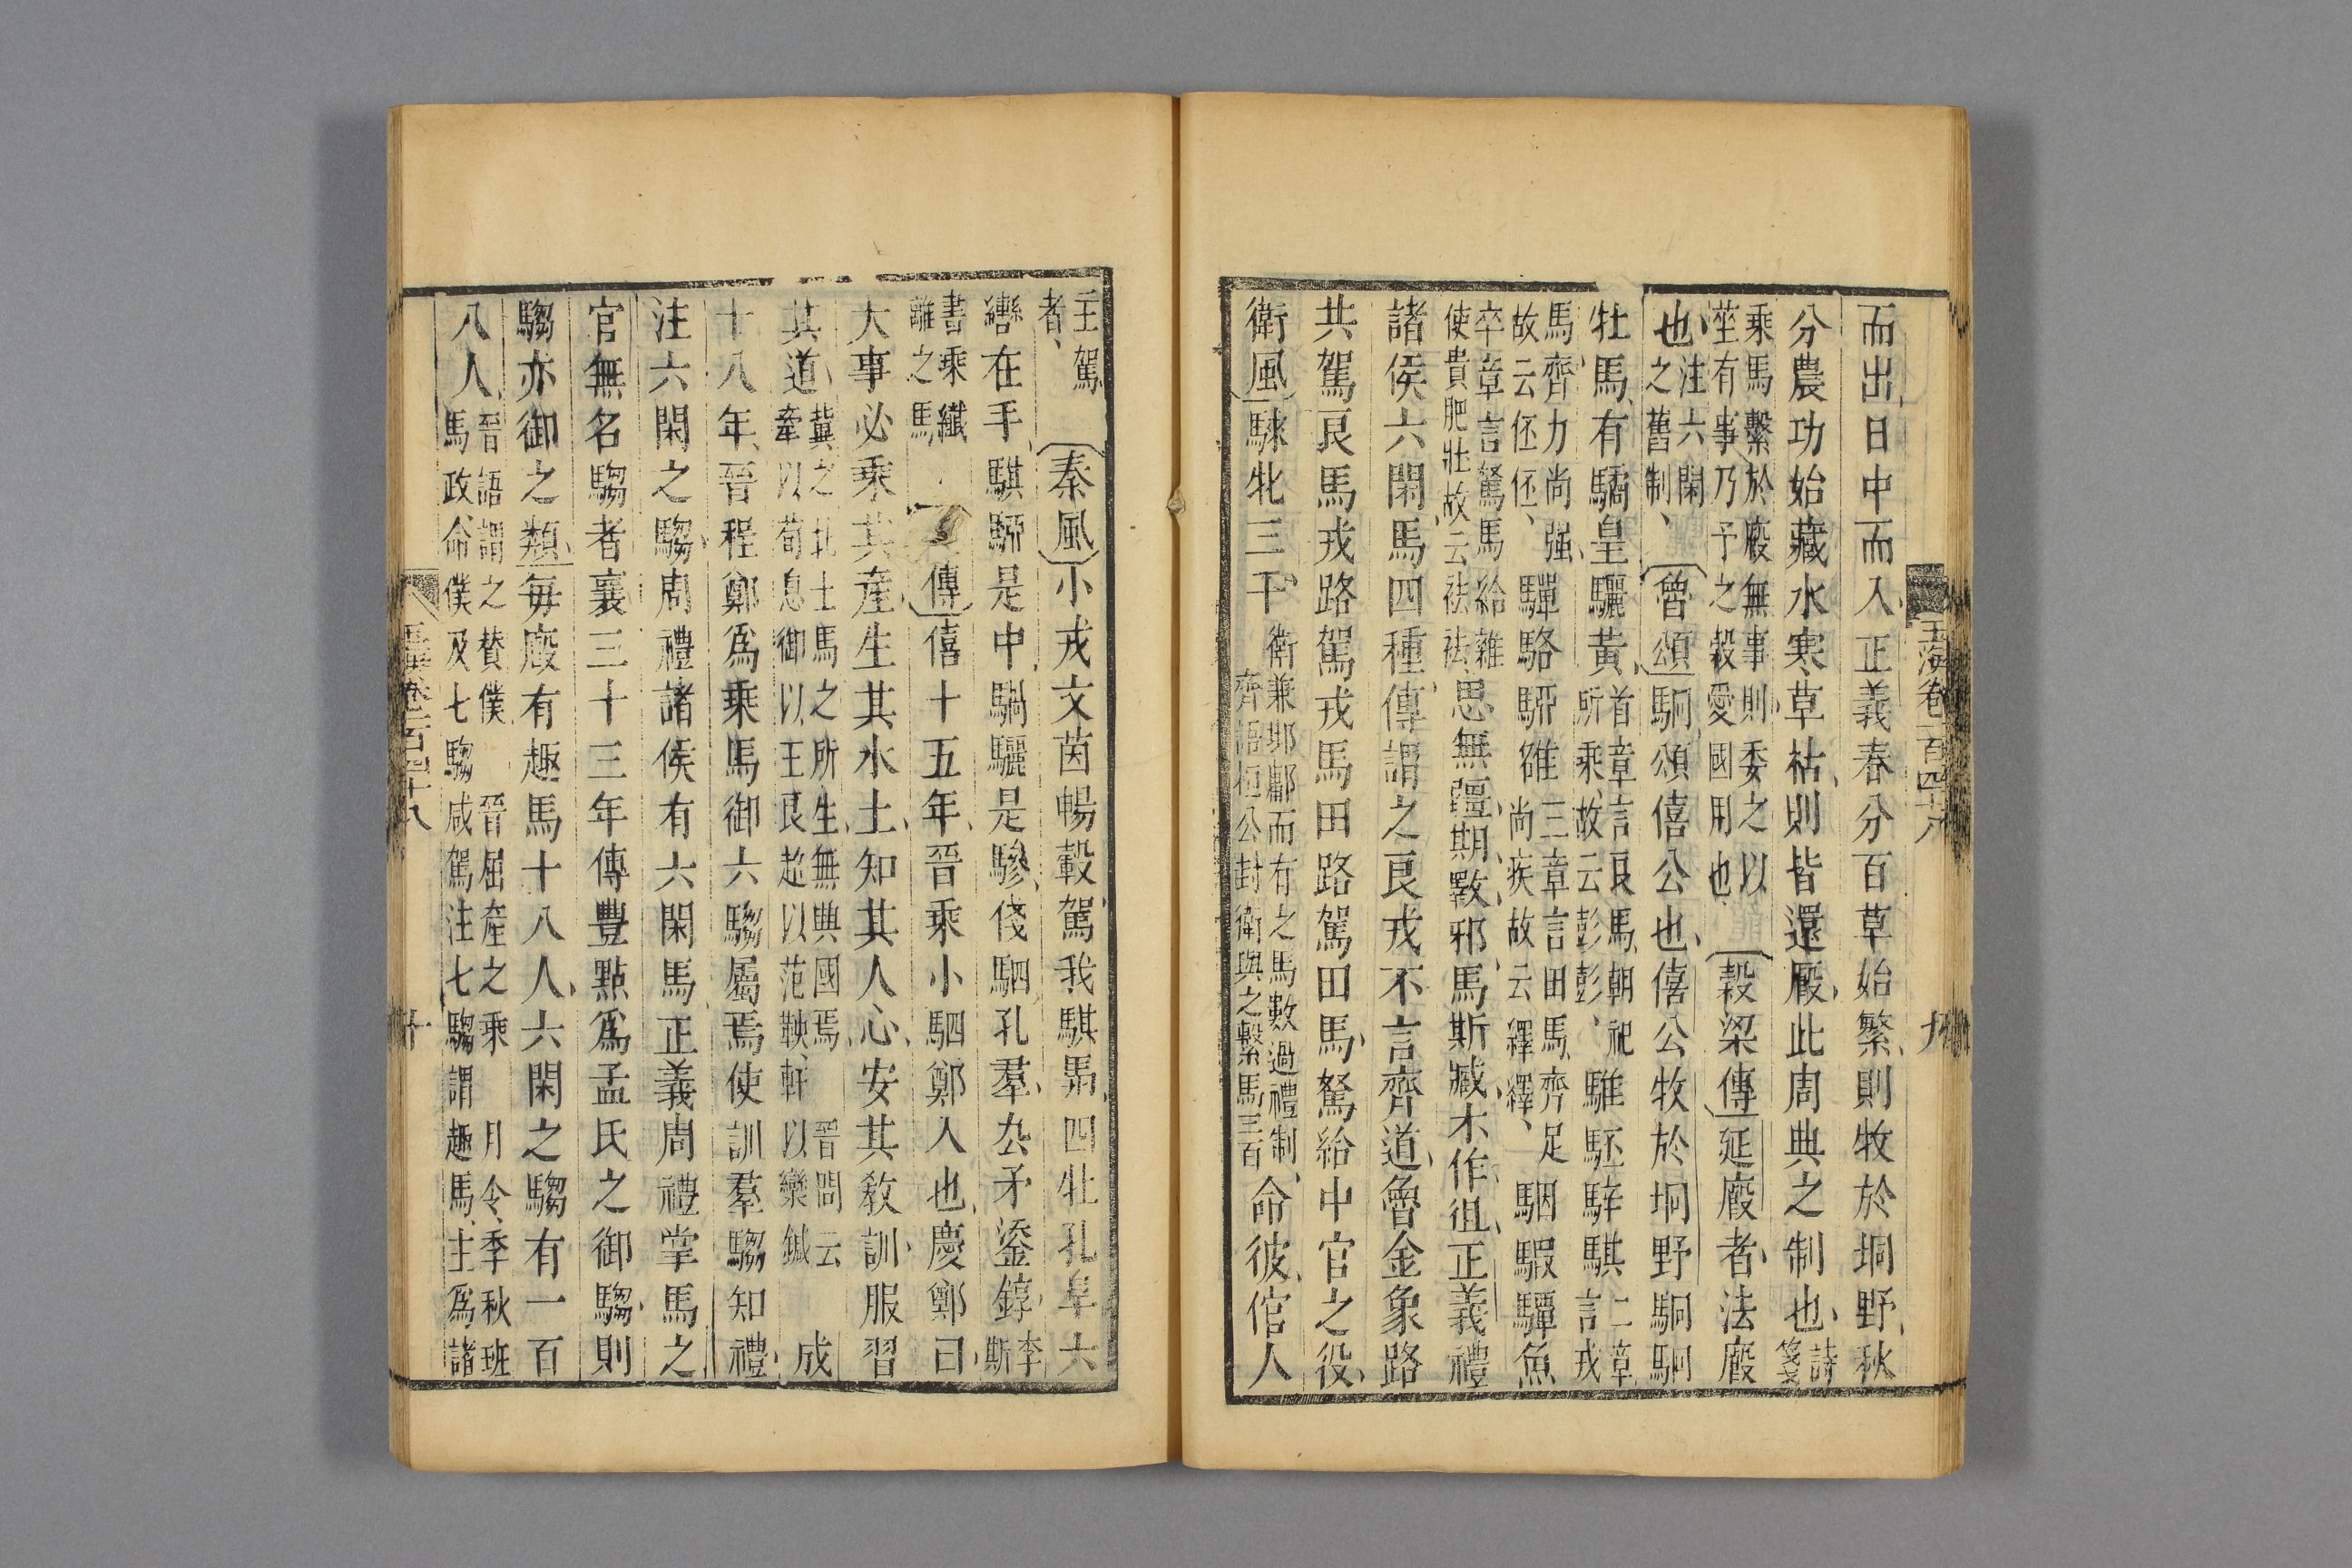 玉海卷一百四十八 九
而出日中而入正義春分百草始繁則牧於坰野秋
分農功始藏水寒草枯則皆還廄此周典之制也詩箋
乘馬繫於廄無事則委之以
莝有事乃予之穀愛國用也
穀梁傳延廄者法廄
也注六閑
之舊制
魯頌駉頌僖公也僖公牧於坰野駉駉
牡馬有驈皇驪黃首章言良馬朝祀
所乘故云彭彭
騅駓騂騏二章
言戎
馬齊力尚强
故云伾伾
驒駱駵雒三章言田馬齊足
尚疾故云繹繹
駰騢驔魚
卒章言駑馬給雜
使貴肥壯故云祛祛
思無疆期斁邪馬斯臧才作徂正義禮
諸侯六閑馬四種傳謂之良戎不言齊道魯金象路
共駕良馬戎路駕戎馬田路駕田馬駑給中官之役
衛風騋牝三千衛兼邶鄘而有之馬數過禮制
齊語桓公封衛與之繫馬三百
命彼倌人
主駕
者
秦風小戎文茵暢轂駕我騏馵四牡孔阜六
轡在手騏駵是中騧驪是驂俴駟孔羣厹矛鋈錞李
斯
書乘纖
離之馬
傳僖十五年晉乘小駟鄭入也慶鄭曰
大事必乘其產生其水土知其人心安其教訓服習
其道冀之北土馬之所生無興國焉
牽以荀息御以王良趁以范鞅軒
晉問云
以欒鍼
成
十八年晉程鄭爲乘馬御六騶屬焉使訓羣騶知禮
注六閑之騶周禮諸侯有六閑馬正義周禮掌馬之
官無名騶者襄三十三年傳豐點爲孟氏之御騶則
騶亦御之類每廄有趣馬十八人六閑之騶有一百
八人晉語謂之贊僕 晉屈產之乘 月令季秋班
馬政命僕及七騶咸駕注七騶謂趣馬主爲諸
玉海卷一百四十八 十